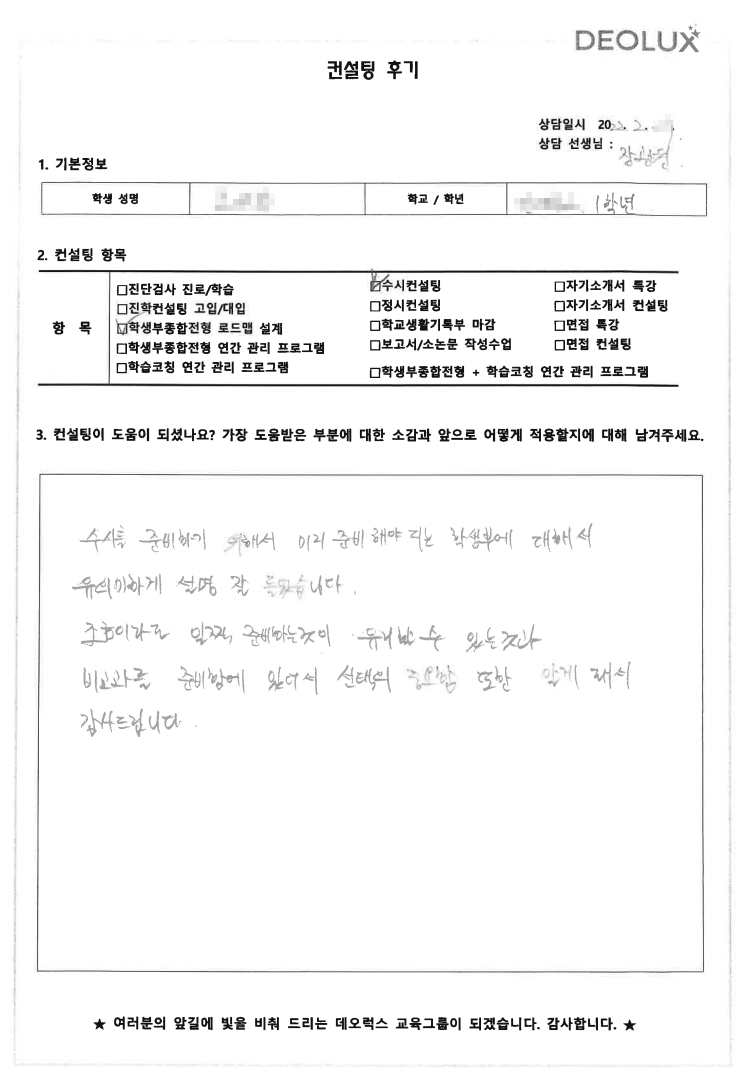 DEOLUX
컨설팅 후기
상담일시 2022. 2.
상담 선생님 :
1. 기본정보
학생 성명 학교 / 학년 1학년
2. 컨설팅 항목
항 목
□진단검사 진로/학습 ☑수시컨설팅 □자기소개서 특강
□진학컨설팅 고입/대입 □정시컨설팅 □자기소개서 컨설팅
☑학생부종합전형 로드맵 설계 □학교생활기록부 마감 □면접 특강
□학생부종합전형 연간 관리 프로그램 □보고서/소논문 작성수업 □면접 컨설팅
□학습코칭 연간 관리 프로그램 □학생부종합전형 + 학습코칭 연간 관리 프로그램
3. 컨설팅이 도움이 되셨나요? 가장 도움받은 부분에 대한 소감과 앞으로 어떻게 적용할지에 대해 남겨주세요.
수시를 준비하기 위해서 미리 준비해야 되는 학생부에 대해서
유의미하게 설명 잘 들었습니다.
조금이라도 일찍 준비하는것이 유리할 수 있는것과
비교과를 준비함에 있어서 선택의 중요함 또한 알게 돼서
감사드립니다.
★ 여러분의 앞길에 빛을 비춰 드리는 데오럭스 교육그룹이 되겠습니다. 감사합니다. ★